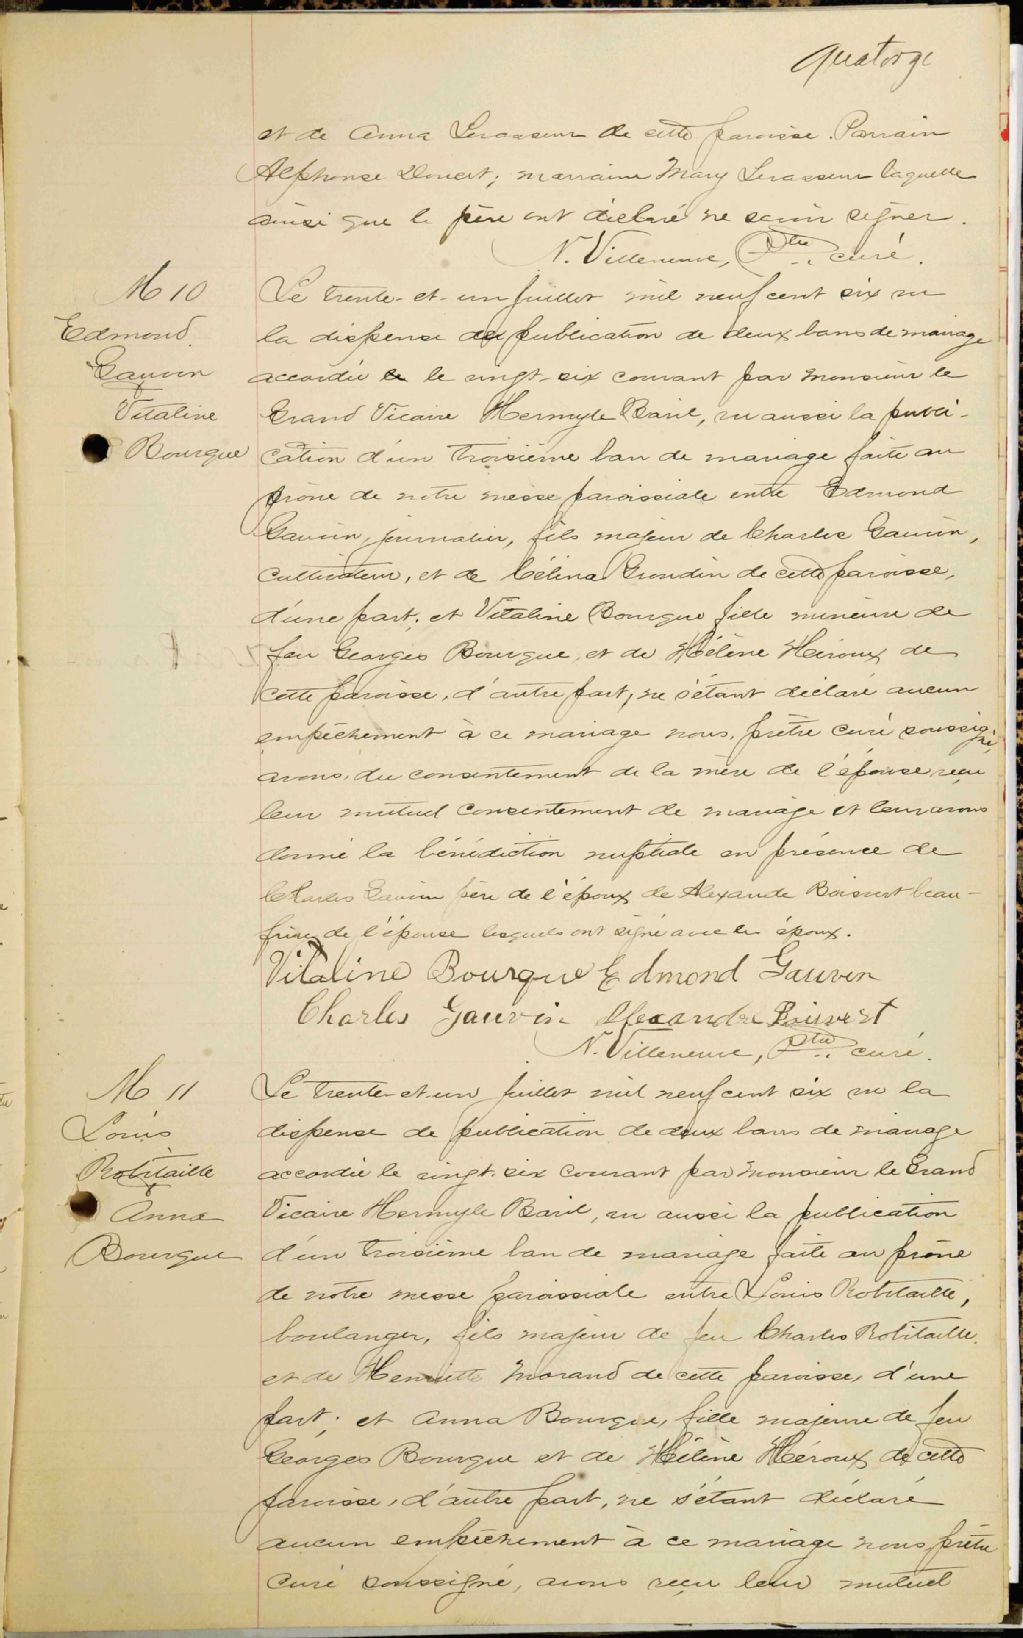 quatorze
et de Anna Levasseur de cette paroisse. Parrain
Alphonse Doucet; marraine Mary Levasseur laquelle
ainsi que le père ont déclaré ne savoir signer.
N. Villeneuve, Ptre curé.
M 10
Edmond
Gauvin
&
Vitaline
Bourque
Le trente-et-un juillet mil neuf cent six vu
la dispense de publication de deux bans de mariage
accordée le vingt-six courant par Monsieur le
Grand Vicaire Hermyle Baril, vu aussi la publi-
cation d'un troisième ban de mariage faite au
prône de notre messe paroissiale entre Edmond
Gauvin, journalier, fils majeur de Charles Gauvin,
cultivateur, et de Célina Grondin de cette paroisse,
d'une part; et Vitaline Bourque fille mineure de
feu Georges Bourque, et de Hélène Héroux de
cette paroisse, d'autre part, ne s'étant déclaré aucun
empêchement à ce mariage nous, prêtre curé soussigné,
avons, du consentement de la mère de l'épouse, reçu
leur mutuel consentement de mariage et leur avons
donné la bénédiction nuptiale en présence de
Charles Gauvin père de l'époux de Alexandre Boisvert beau-
frère de l'épouse lesquels ont signé avec les époux.
Vitaline Bourque Edmond Gauvin
Charles Gauvin Alexandre Boisvert
N. Villeneuve, Ptre curé.
M 11
Louis
Robitaille
&
Anna
Bourque
Le trente-et-un juillet mil neuf cent six vu la
dispense de publication de deux bans de mariage
accordée le vingt-six courant par Monsieur le Grand
Vicaire Hermyle Baril, vu aussi la publication
d'un troisième ban de mariage faite au prône
de notre messe paroissiale entre Louis Robitaille,
boulanger, fils majeur de feu Charles Robitaille
et de Henriette Morand de cette paroisse, d'une
part; et Anna Bourque, fille majeure de feu
Georges Bourque et de Hélène Héroux de cette
paroisse, d'autre part, ne s'étant déclaré
aucun empêchement à ce mariage nous prêtre
curé soussigné, avons reçu leur mutuel